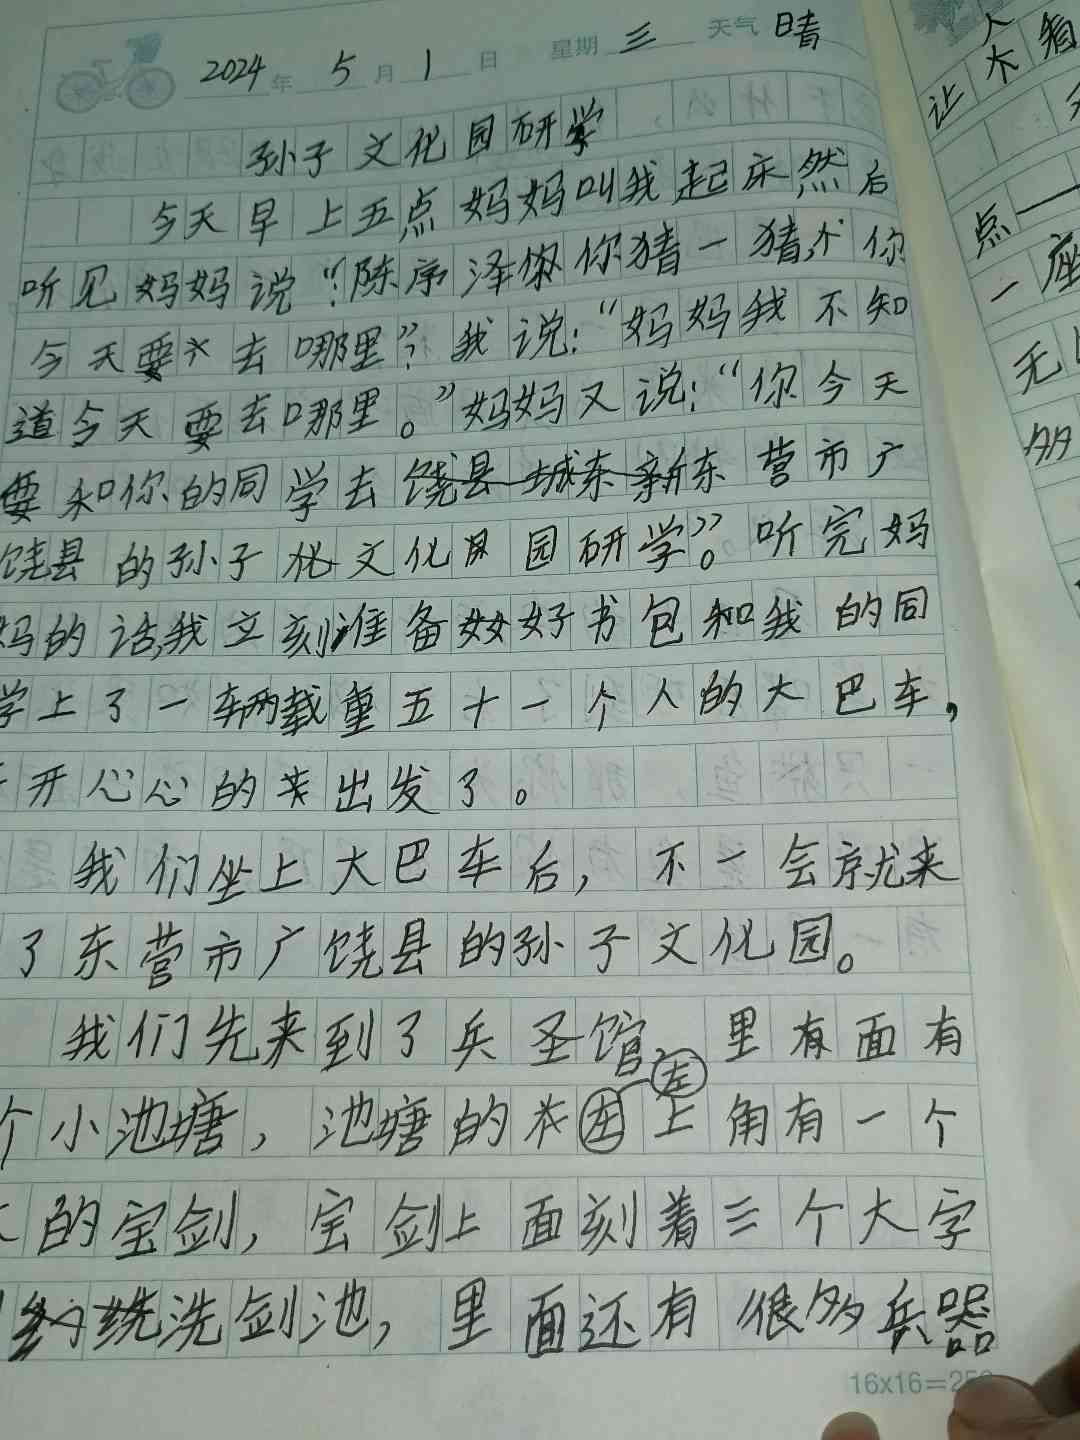 2024年 5月1日 星期三 天气晴
孙子文化园研学
今天早上五点妈妈叫我起床然后
听见妈妈说“陈序泽你猜一猜,你
今天要去哪里”?我说:“妈妈我不知
道今天要去哪里。”妈妈又说:“你今天
要和你的同学去东营市广
饶县的孙子文化园研学”。听完妈
妈的话,我立刻准备好书包和我的同
学上了一辆载重五十一个人的大巴车,
开心心的出发了。
我们坐上大巴车后,不一会就来
了东营市广饶县的孙子文化园。
我们先来到了兵圣馆,里有面有
个小池塘,池塘的左上角有一个
的宝剑,宝剑上面刻着三个大字
洗剑池,里面还有很多兵器
16x16=25
人
木看
让
点——
一座
无
多